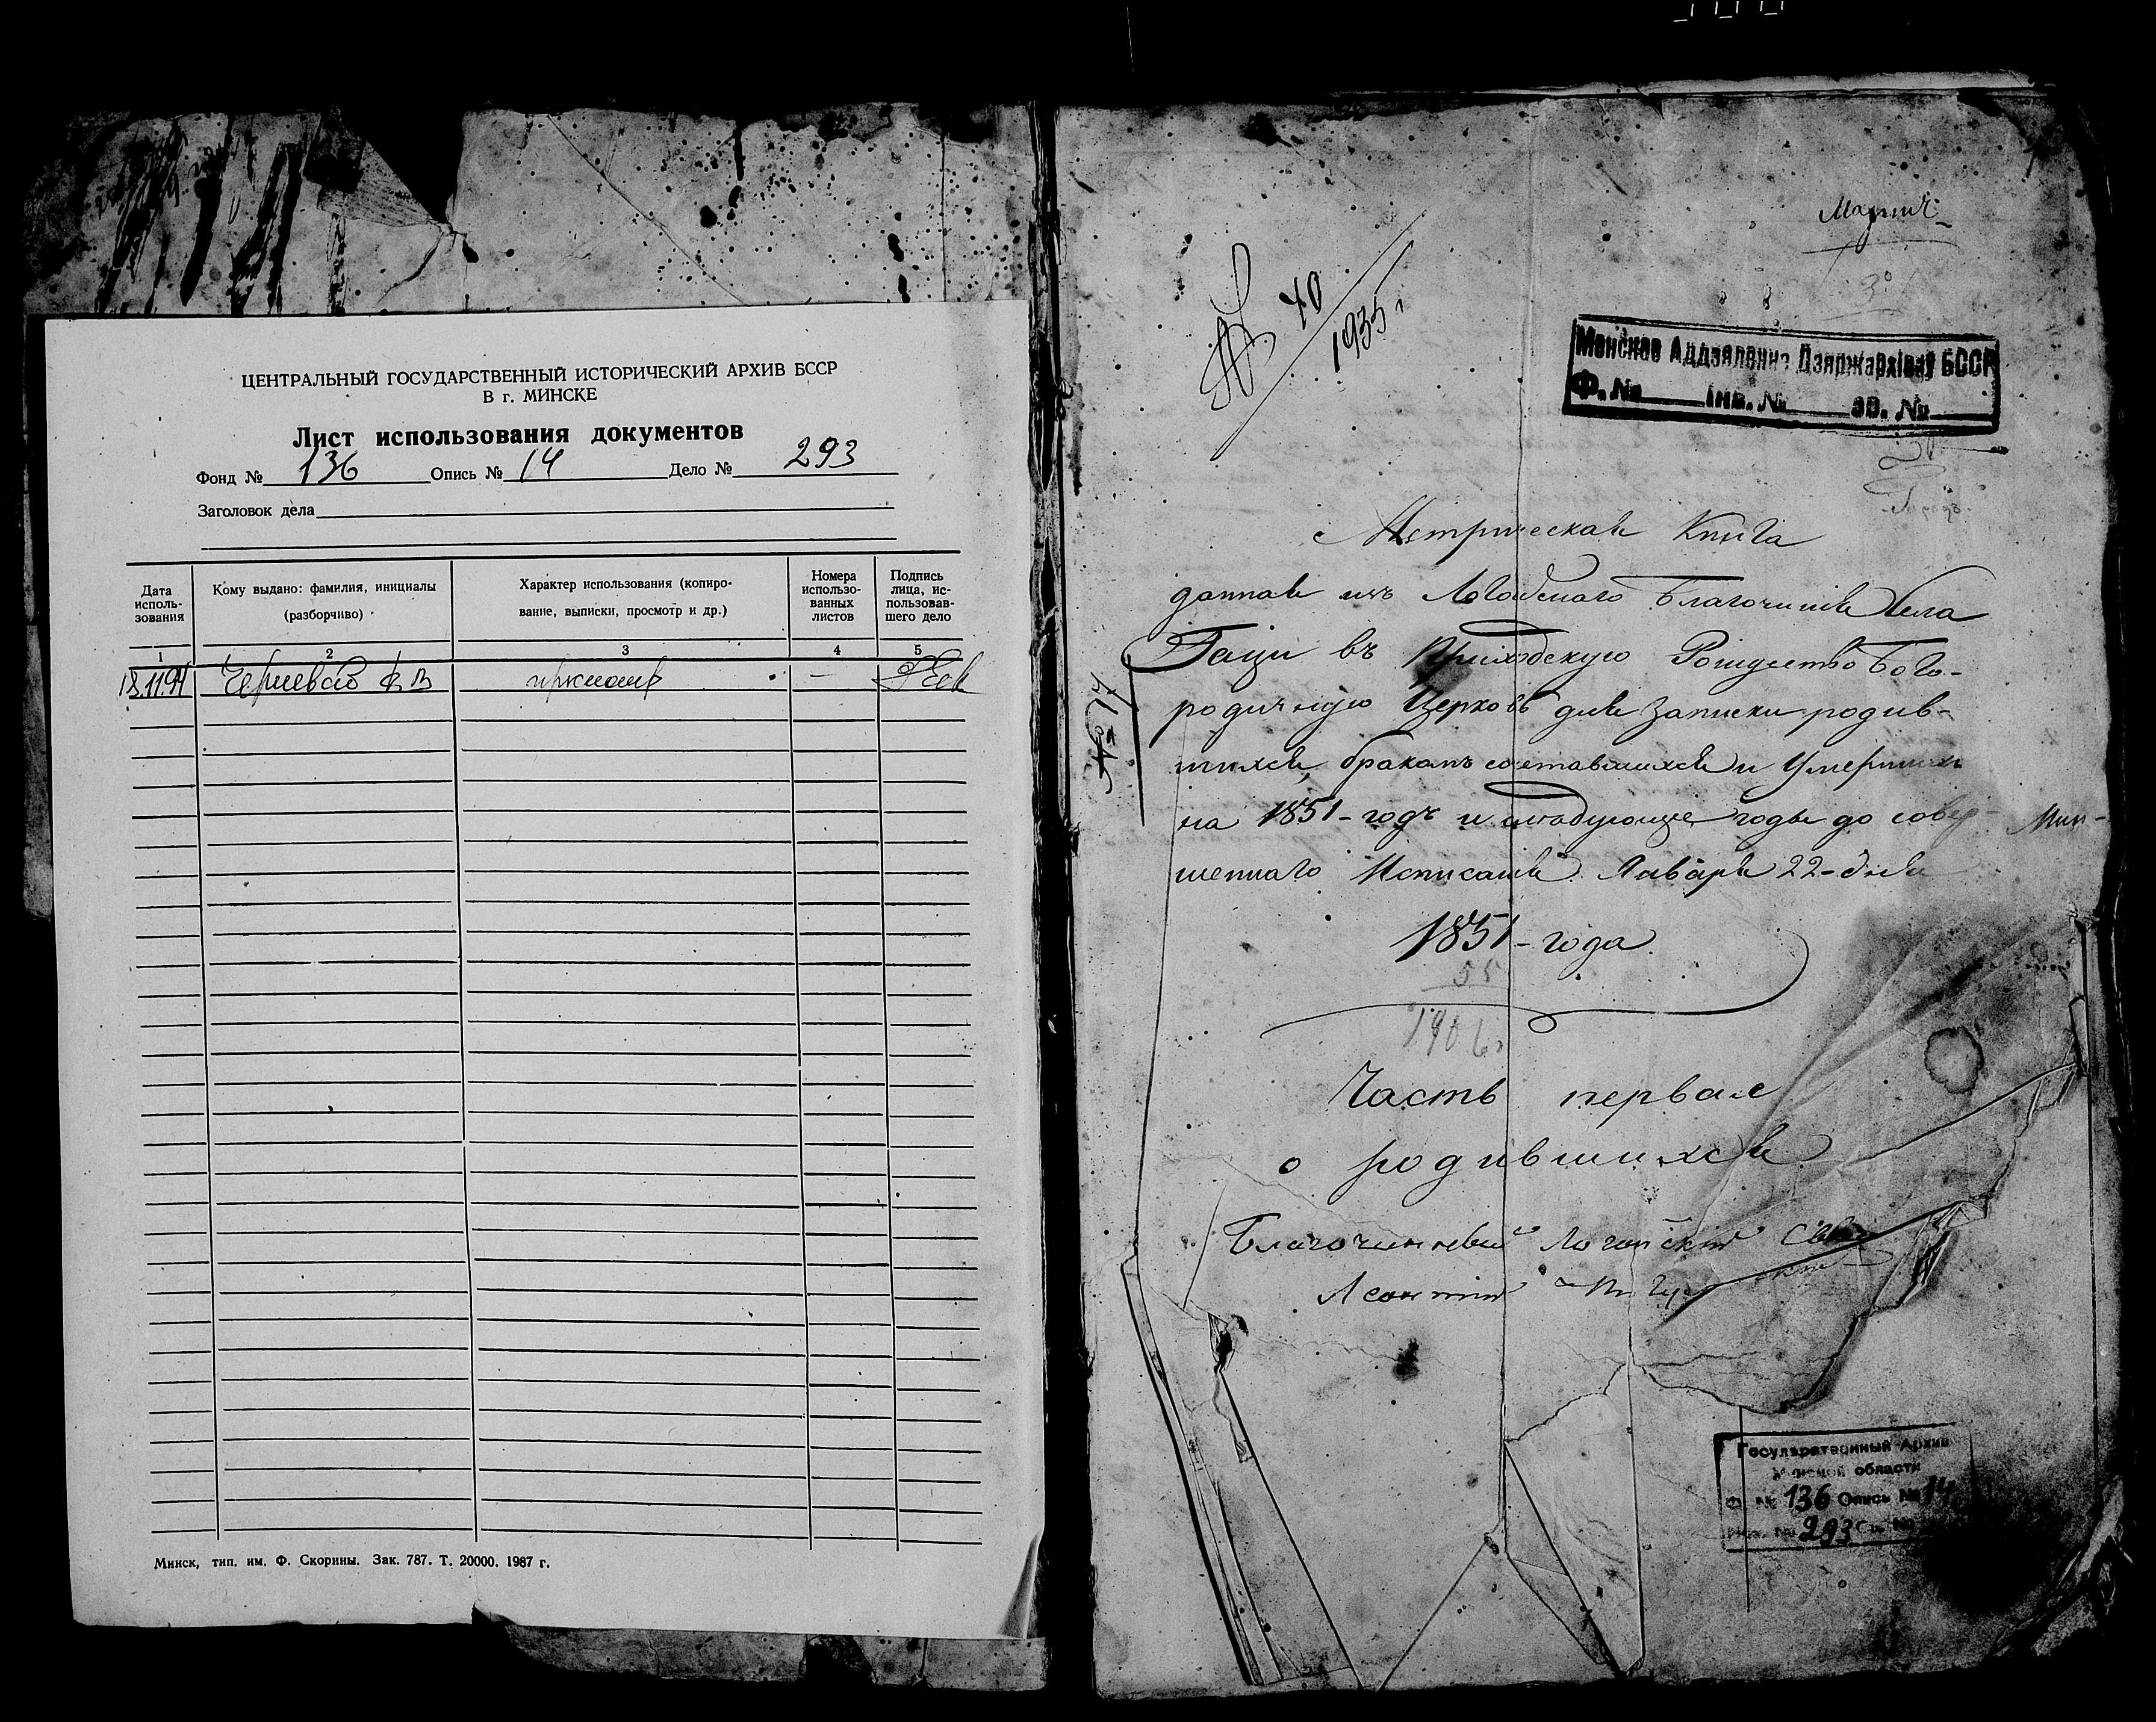 ЦЕНТРАЛЬНЫЙ ГОСУДАРСТВЕННЫЙ ИСТОРИЧЕСКИЙ АРХИВ БССР
В г. МИНСКЕ
Лист использования документов
Фонд № 136 Опись № 14 Дело № 293
Заголовок дела
Дата исполь-
зования
Кому выдано: фамилия, инициалы
(разборчиво)
Характер использования (копиро-
вание, выписки, просмотр и др.)
Номера
использо-
ванных
листов
Подпись
лица, ис-
пользовав-
шего дело
1 2 3 4 5
Минск, тип. им. Ф. Скорины. Зак. 787. Т. 20000. 1987 г.
40
1935 г
Менскае Аддзяленне Дзяржархіву БССР
Ф. № Інв. № эв. №
Метрическая Книга
данная изъ Логойскаго Благочинія Села
Гаци въ Приходскую Рождество Бого-
родичную Церковь для записки родив-
шихся, бракомъ сочетавшихся и Умершихъ
на 1851-годъ и слѣдующіе годы до совер-
шеннаго Исписанія. Января 22-дня
1851-года.
55
1906
Часть первая
о родившихся
Благочинный Логойскій
Леонтій
Государственный Архив
Минской области
Ф. № 136 Опись № 14
293